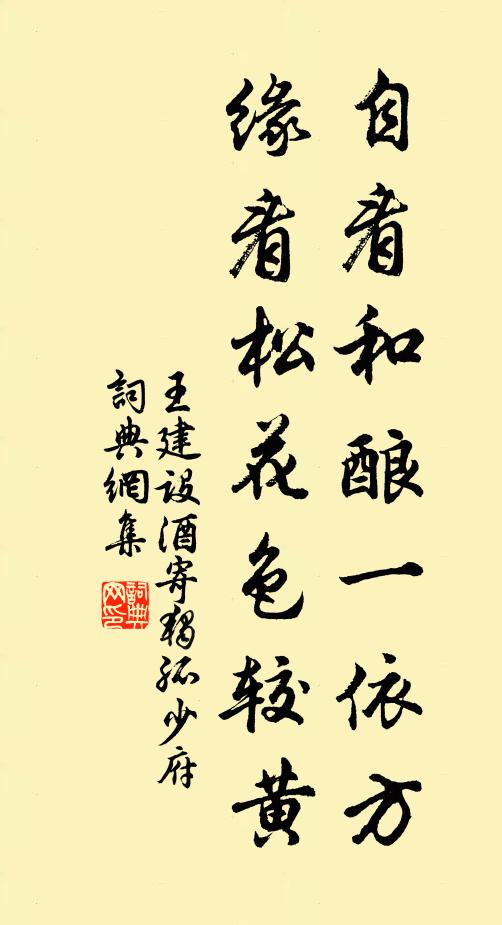 自看和酿一依方
缘看松花色较黄
王建設酒寄獨孤少府
詞典網集
詞典网印